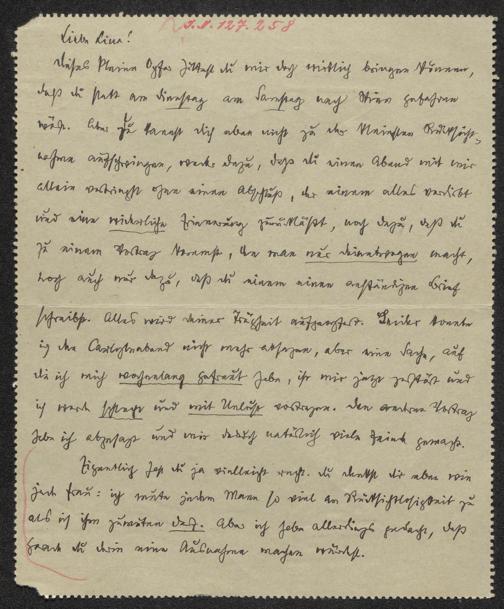 I.N. 127.258
Liebe Lina!
Dieses kleine Opfer hättest du mir doch wirklich bringen können,
daß du statt am Dienstag am Samstag nach Wien gefahren
wärst. Aber du kannst dich eben nicht zu der kleinsten Rücksicht-
nahme aufschwingen, weder dazu, daß du einen Abend mit mir
allein verbringst ohne einen Abschluß, der einem alles verdirbt
und eine widerliche Erinnerung zurückläßt, noch dazu, daß du
zu einem Vortrag kommst, den man nur deinetwegen macht,
noch auch nur dazu, daß du einem einen anständigen Brief
schreibst. Alles wird deiner Trägheit aufgeopfert. Leider konnte
ich den nicht mehr absagen, aber eine Sache, auf
die ich mich wochenlang gefreut habe, ist mir jetzt zerstört und
ich werde schlecht und mit Unlust vortragen. Den anderen Vortrag
habe ich abgesagt und mir dadurch natürlich viele Feinde gemacht.
Eigentlich hast du ja vielleicht recht. Du denkst dir eben wie
jede Frau: ich mute jedem Mann so viel an Rücksichtslosigkeit zu
als ich ihm zumuten darf. Aber ich habe allerdings gedacht, daß
gerade du darin eine Ausnahme machen würdest.